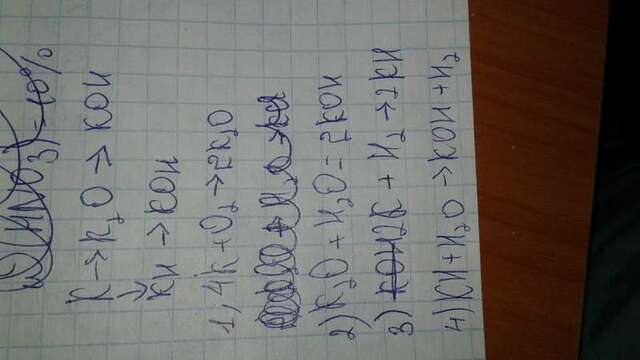 (HNO3) = 40%
K → K2O → KOH
↘
KH → KOH
1, 4K + O2 → 2K2O
2) K2O + H2O = 2KOH
3) 2K + H2 → 2KH
4) KH + H2O → KOH + H2